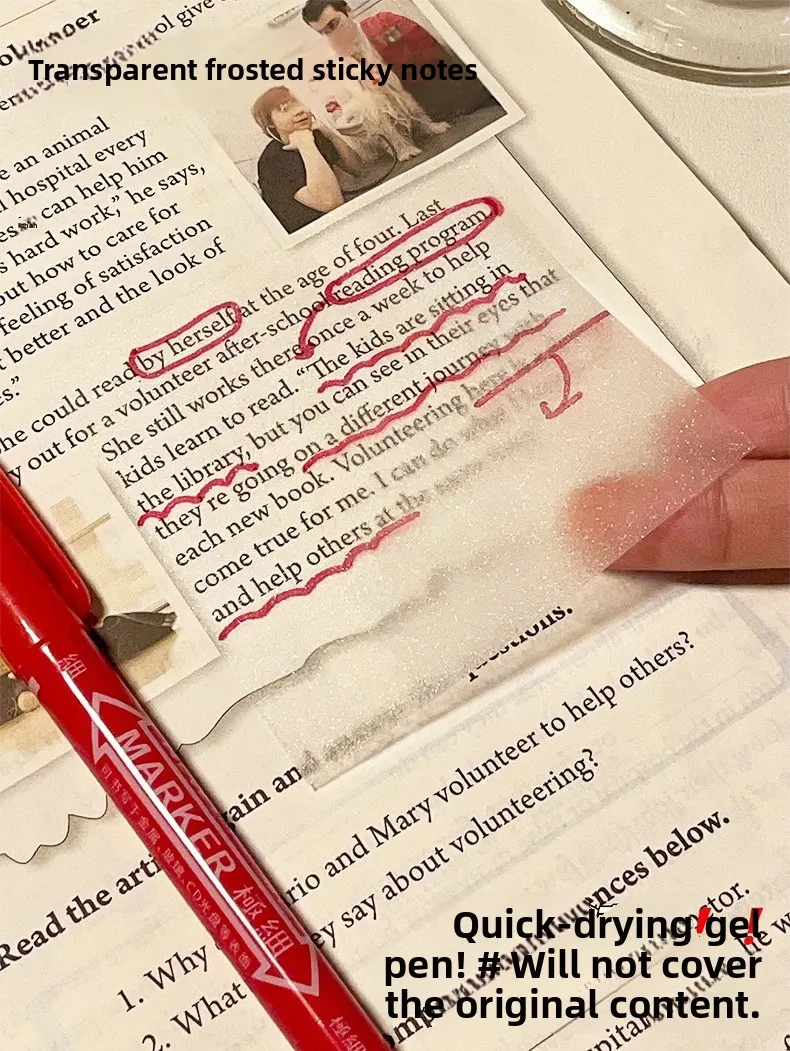 Transparent frosted sticky notes
ol give
e an animal
l hospital every
can help him
s hard work,” he says,
out how to care for
feeling of satisfaction
t better and the look of
es.”
by herself at the age of four. Last
he could read
y out for a volunteer after-school reading program.
She still works there once a week to help
kids learn to read. “The kids are sitting in
the library, but you can see in their eyes that
they're going on a different journey with
each new book. Volunteering here
come true for me. I can do what
and help others at the
Read the arti
ain an
1. Why
rio and Mary volunteer to help others?
2. What
ey say about volunteering?
ences below.
MARKER 極細
可书写于金属、玻璃、CD光盘等表面
細
極細
Quick-drying gel
pen! # Will not cover
the original content.